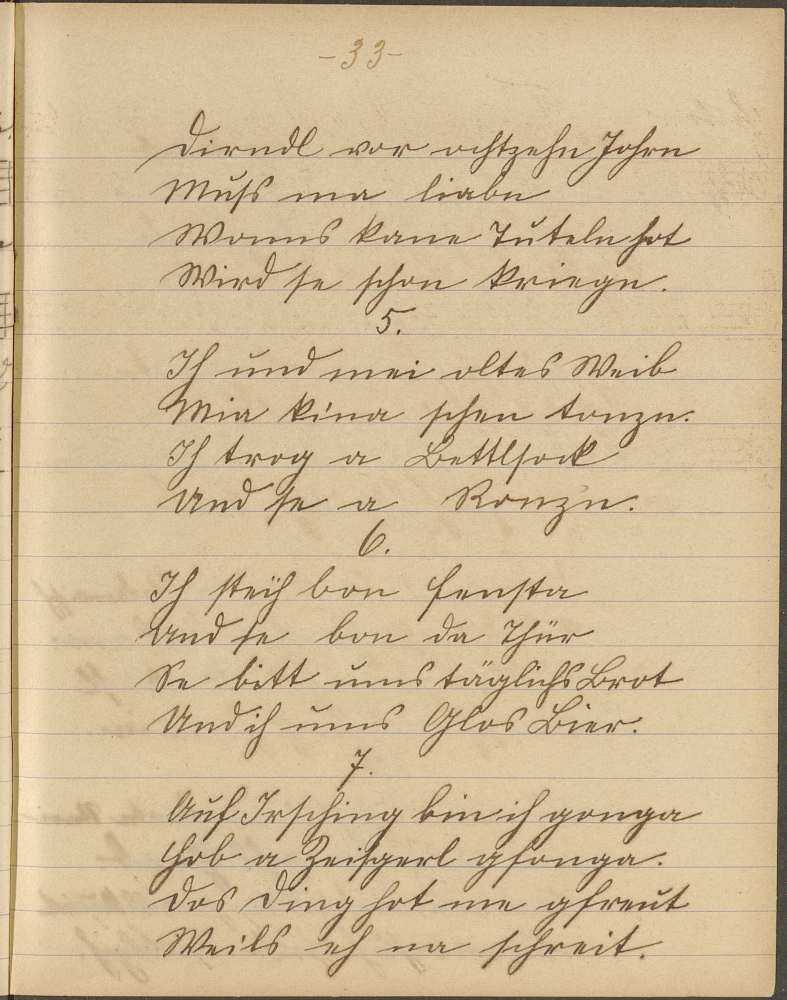 -33-
Dirndl vor ochtzehn Johrn
Muss ma liabn
Wonns kane Tuteln hot
Wird se schon kriegn.
5.
Ih und mei oltes Weib
Mia kina schen tonzn.
Ih trog a Bettlsock
Und se a Ronzn.
6.
Ih steih bon Fensta
Und se bon da Thür
Se bitt ums täglichs Brot
Und ih ums Glos Bier.
7.
Auf Irsching bin ih gonga
Hob a Zeisgerl gfonga.
Dos Ding hot me gfreut
Weils eh na schreit.